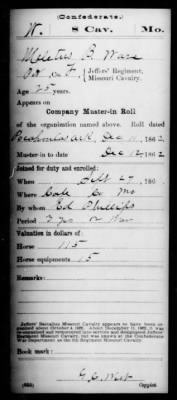 (Confederate.)
W. 8 Cav. Mo.
Meletus B. Ware
Pvt., Co. F, Jeffers' Regiment,
Missouri Cavalry.
Age 25 years.
Appears on
Company Muster-in Roll
of the organization named above. Roll dated
Pocahontas Ark, Dec 11, 1862.
Muster-in to date Dec 12, 1862
Joined for duty and enrolled:
When Sept 27, 186
Where Cole Co Mo
By whom Ed Phillips
Period 3 yrs or War
Valuation in dollars of:
Horse 115
Horse equipments 15
Remarks:
Jeffers' Battalion Missouri Cavalry appears to have been organized about October 1, 1862. About December 11, 1862, it was re-organized and augmented into Jeffers' Regiment Missouri Cavalry, but was known at the Confederate War Department as the 8th Regiment Missouri Cavalry.
Book mark:
(635)
Copyist.